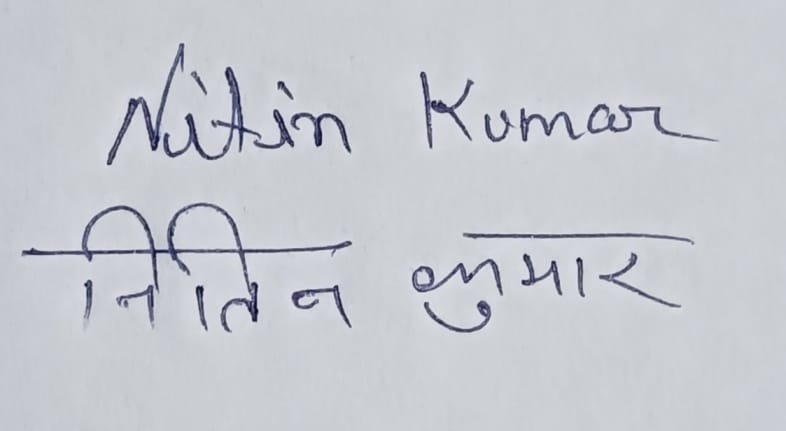 Nitin Kumar
नितिन कुमार